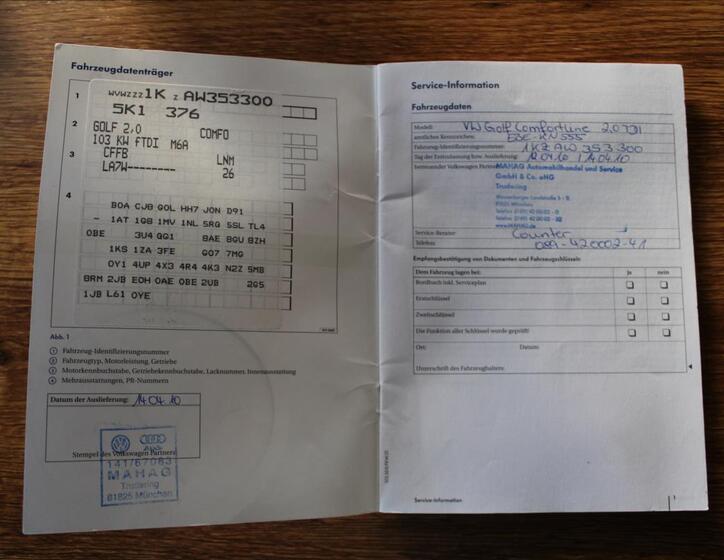 Fahrzeugdatenträger
1 WVWZZZ1K Z AW353300
5K1 376
2 GOLF 2,0 COMFO
103 KW fTDI M6A
3 CFFB LNM
LA7W-------- 26
4
BOA CJB GOL HH7 JON D91
- 1AT 1G8 1MV 1NL 5RG 5SL TL4
0BE 3U4 GG1 8AE 8GU 8ZH
1KS 1ZA 3FE GO7 7MG
OY1 4UP 4X3 4R4 4K3 N2Z 5MB
8RM 2JB EOH OAE 0BE 2UB 2G5
1JB L61 OYE
Abb. 1
1 Fahrzeug-Identifizierungsnummer
2 Fahrzeugtyp, Motorleistung, Getriebe
3 Motorkennbuchstabe, Getriebekennbuchstabe, Lacknummer, Innenausstattung
4 Mehrausstattungen, PR-Nummern
Datum der Auslieferung: 14.04.10
Stempel des Volkswagen Partners
Audi
141/67083
MAHAG
Trudering
81825 München
Service-Information
Fahrzeugdaten
Modell: VW Golf Comfortline 2,0 TDI
amtliches Kennzeichen: EBE-KN 555
Fahrzeug-Identifizierungsnummer: 1KZ AW 353 300
Tag der Erstzulassung bzw. Auslieferung: 12.04.10 / 14.04.10
betreuender Volkswagen Partner: MAHAG Automobilhandel und Service
GmbH & Co. oHG
Trudering
Wasserburger Landstraße
81825 München
www.MAHAG.de
Service-Berater: Counter
Telefon: 089-420002-41
Empfangsbestätigung von Dokumenten und Fahrzeugschlüsseln:
Dem Fahrzeug lagen bei: ja nein
Bordbuch inkl. Serviceplan
Erstschlüssel
Zweitschlüssel
Die Funktion aller Schlüssel wurde geprüft!
Ort: Datum:
Unterschrift des Fahrzeughalters:
Service-Information 1